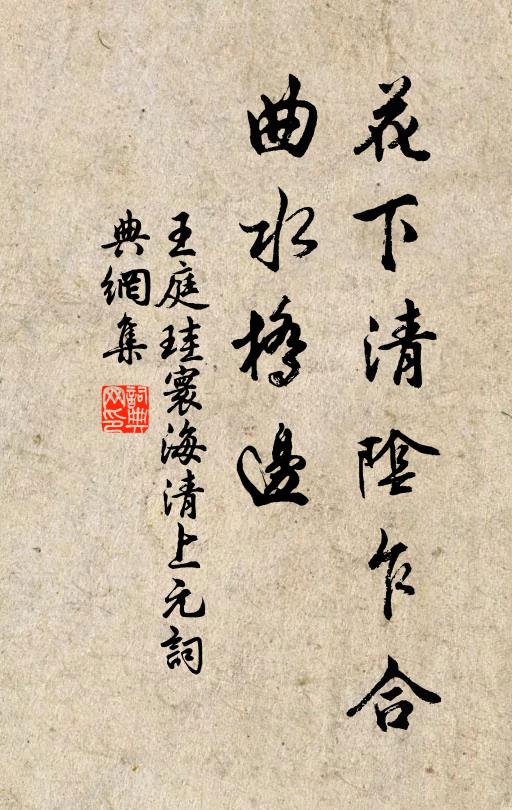 花下清陰乍合
曲水橋邊
王庭珪寰海清上元詞
典網集
詞典网印